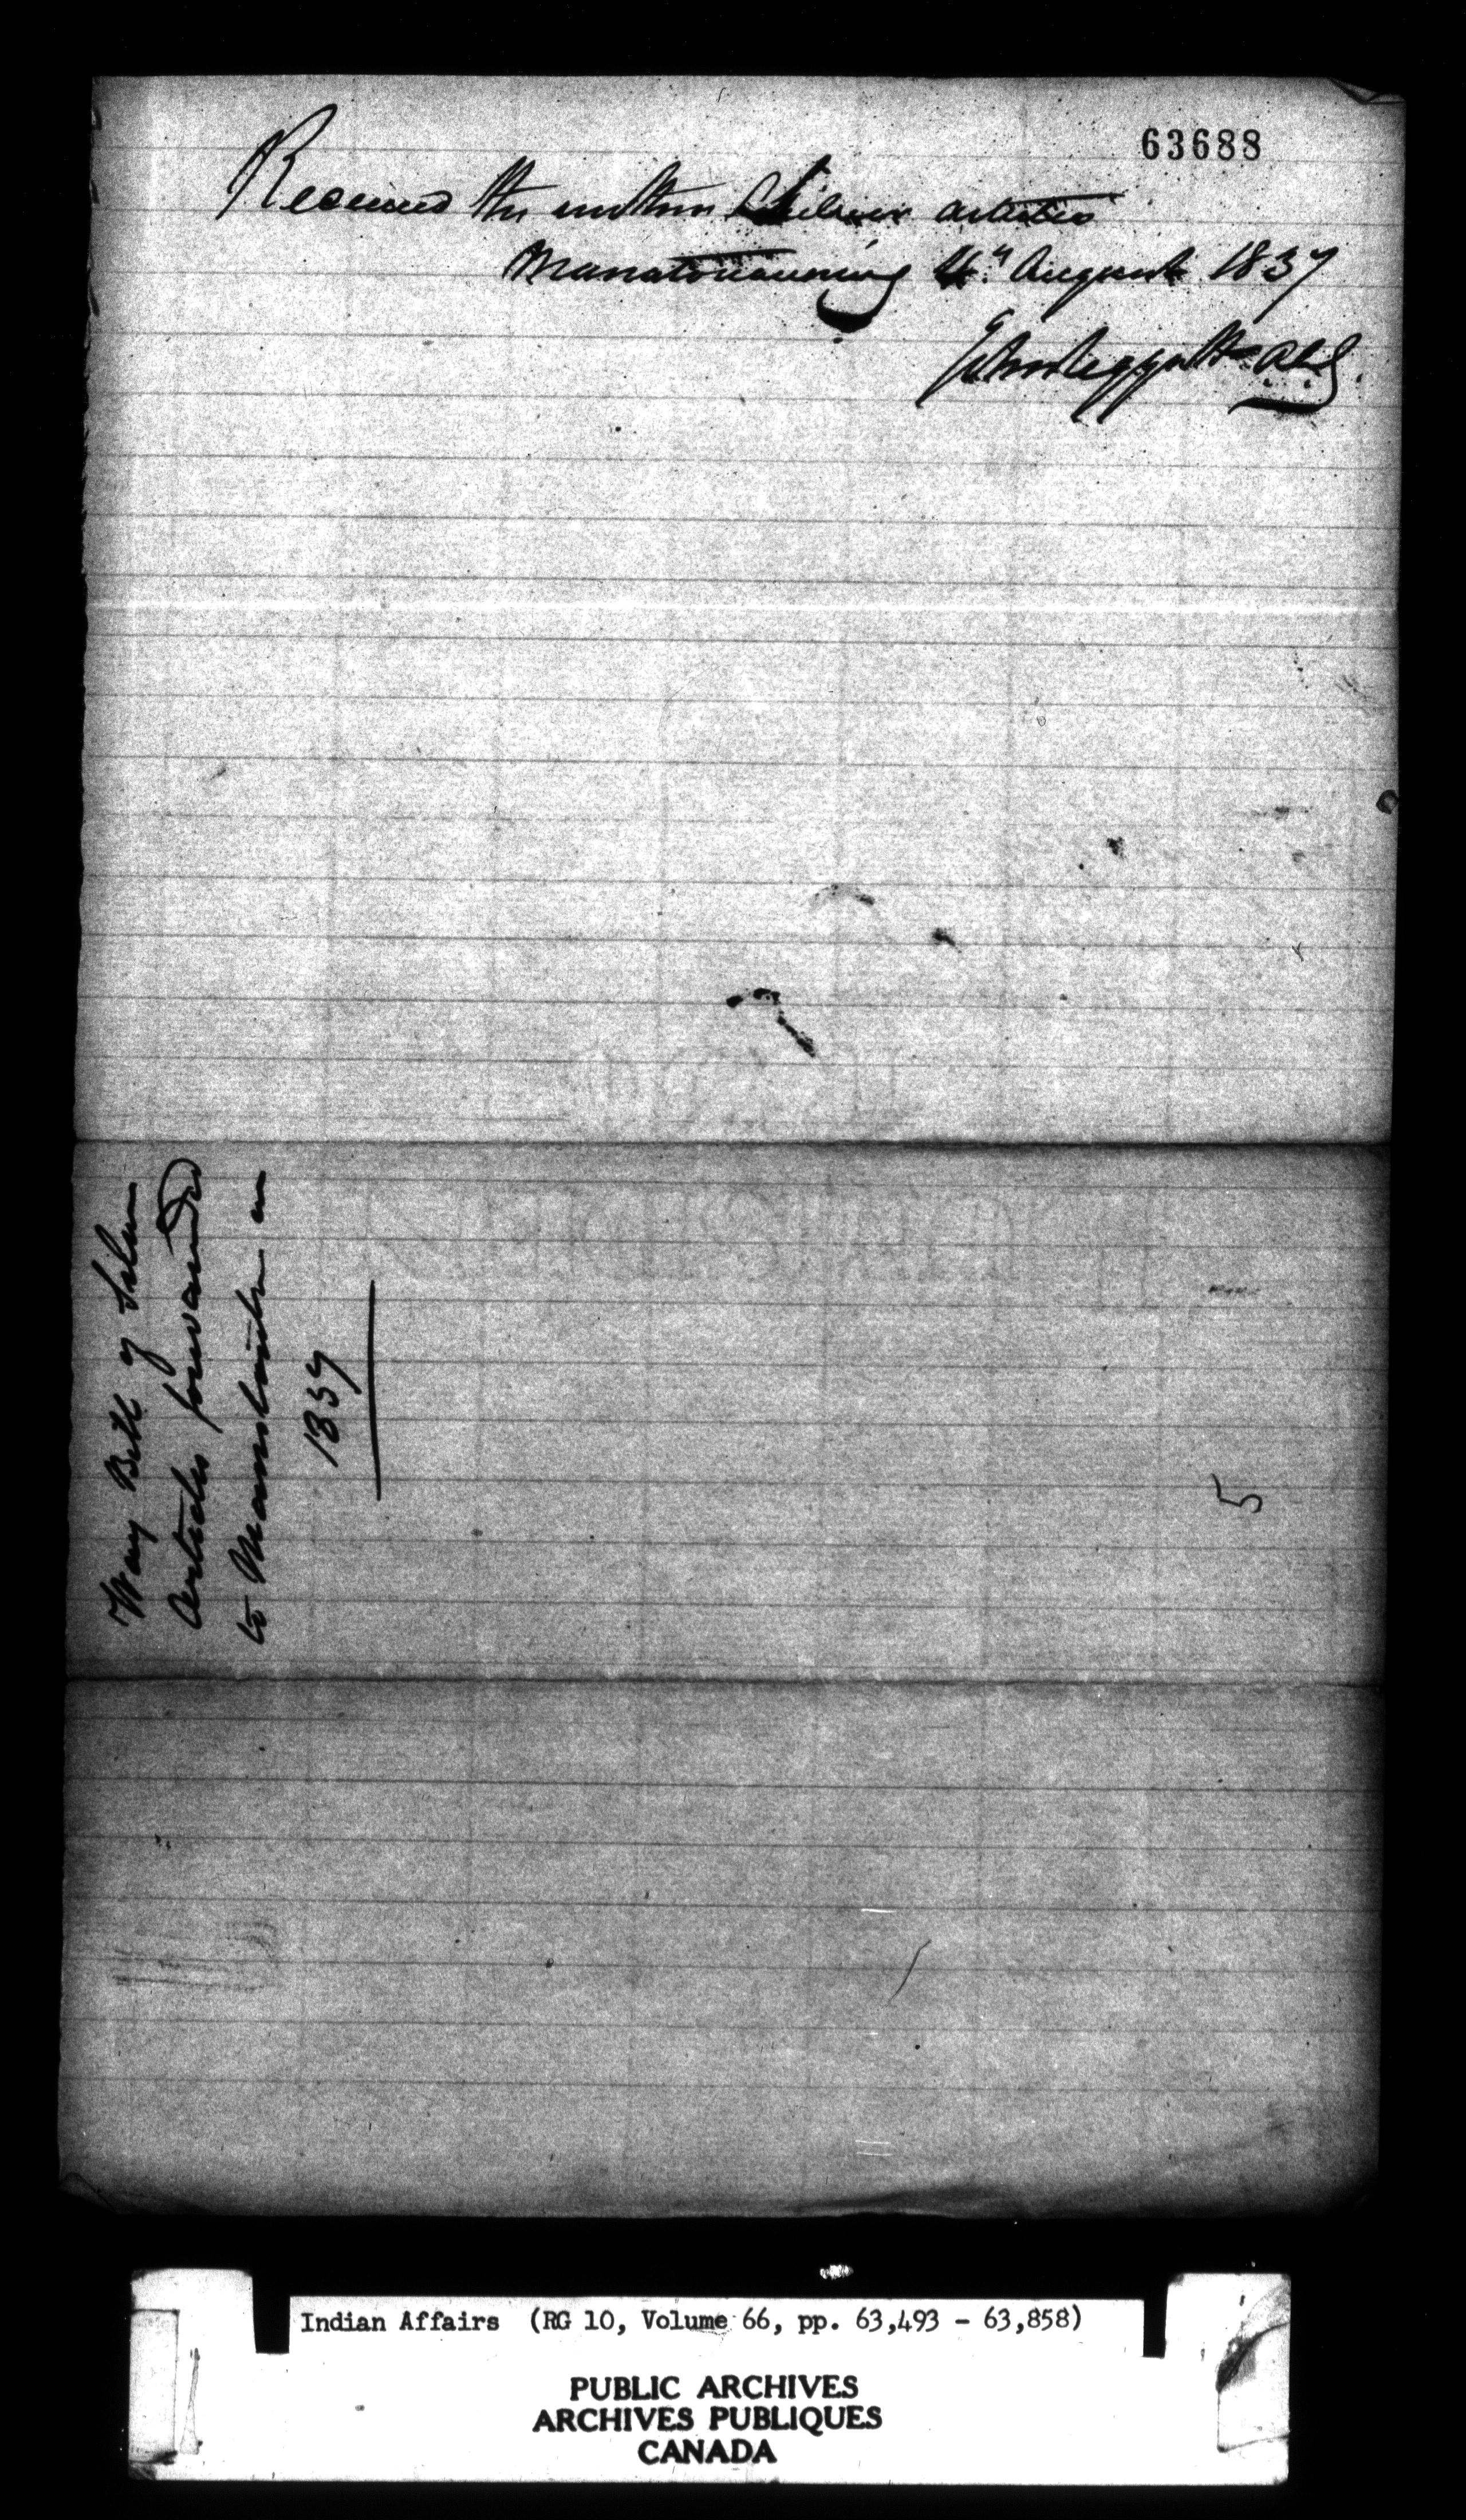 63688
Received the within Silver articles
Manatowauning 4th August 1837
Way Bill of Silver
Articles forwarded
to Manitoulin in
1837
5
Indian Affairs (RG 10, Volume 66, pp. 63,493 - 63,858)
PUBLIC ARCHIVES
ARCHIVES PUBLIQUES
CANADA